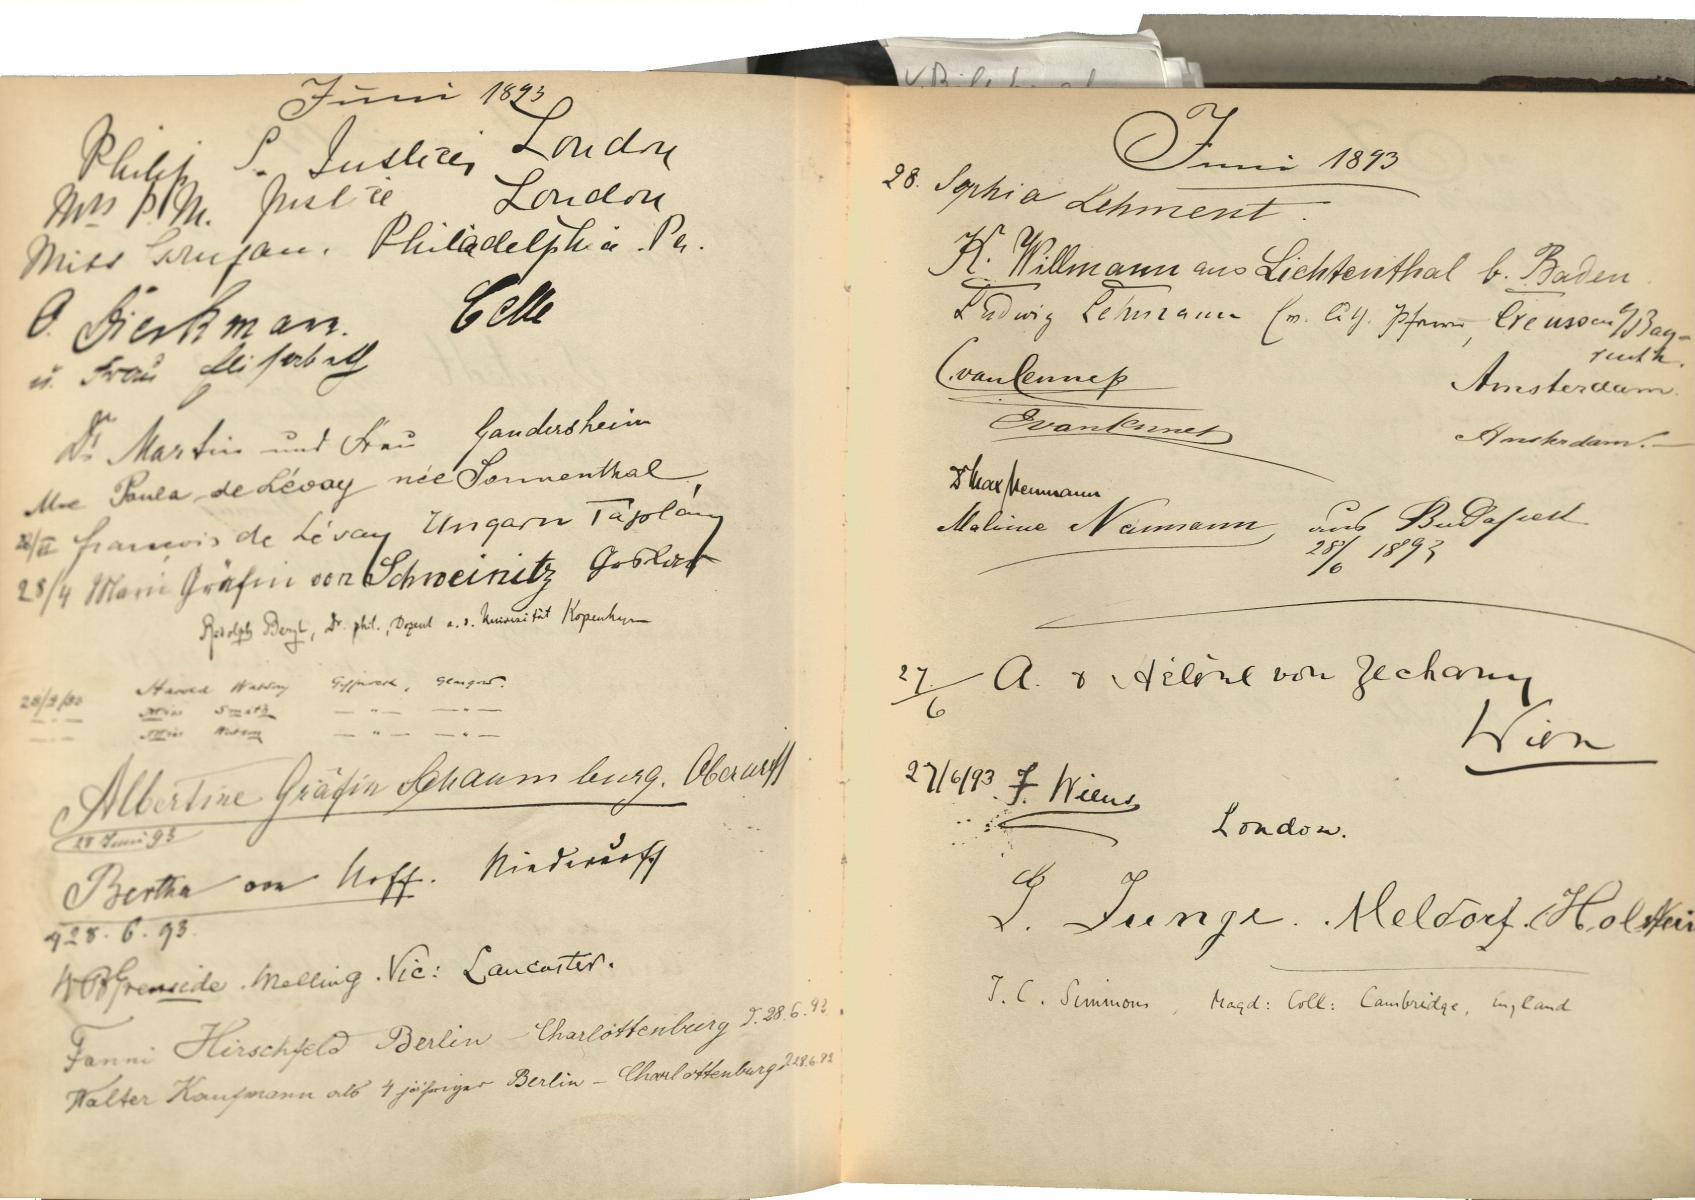 Juni 1893
Philip S. Justice, London
Mrs P. M. Justice London
Miss Philadelphia. Pa.
Celle
u. Frau
Dr. Martin und Frau Gandersheim
Mme Paula de Lévay née Sonnenthal
François de Lévay Ungarn Táplány
28/4 Marie Gräfin von Schweinitz Goslar
Dr. phil., Docent a. d. Universität Kopenhagen
Harold Glasgow.
Miss Smith — " — — " —
Miss — " — — " —
Albertine Gräfin Schaumburg. Oberurff
28 Juni 93
Bertha von Hoff. Niederurff
28. 6. 93.
W B Grenside. Melling. Vic: Lancaster.
Fanni Hirschfeld Berlin - Charlottenburg d. 28.6.93.
Walter Kaufmann als 4 jähriger Berlin - Charlottenburg d 28.6.93
Juni 1893
28. Sophia Lehment.
K. Willmann aus Lichtenthal b. Baden
Ludwig Lehmann Creussen b/Bay-
reuth.
C. van Lennep Amsterdam.
E van Lennep Amsterdam.
Dr Max Neumann
Neumann aus Budapest
28/6 1893
27/6 A. & Hélène von Zechany
Wien
27/6/93. F. Wiens
London.
G. Junge. Meldorf. (Holstein
T. C. Simmons, Magd: Coll: Cambridge, England